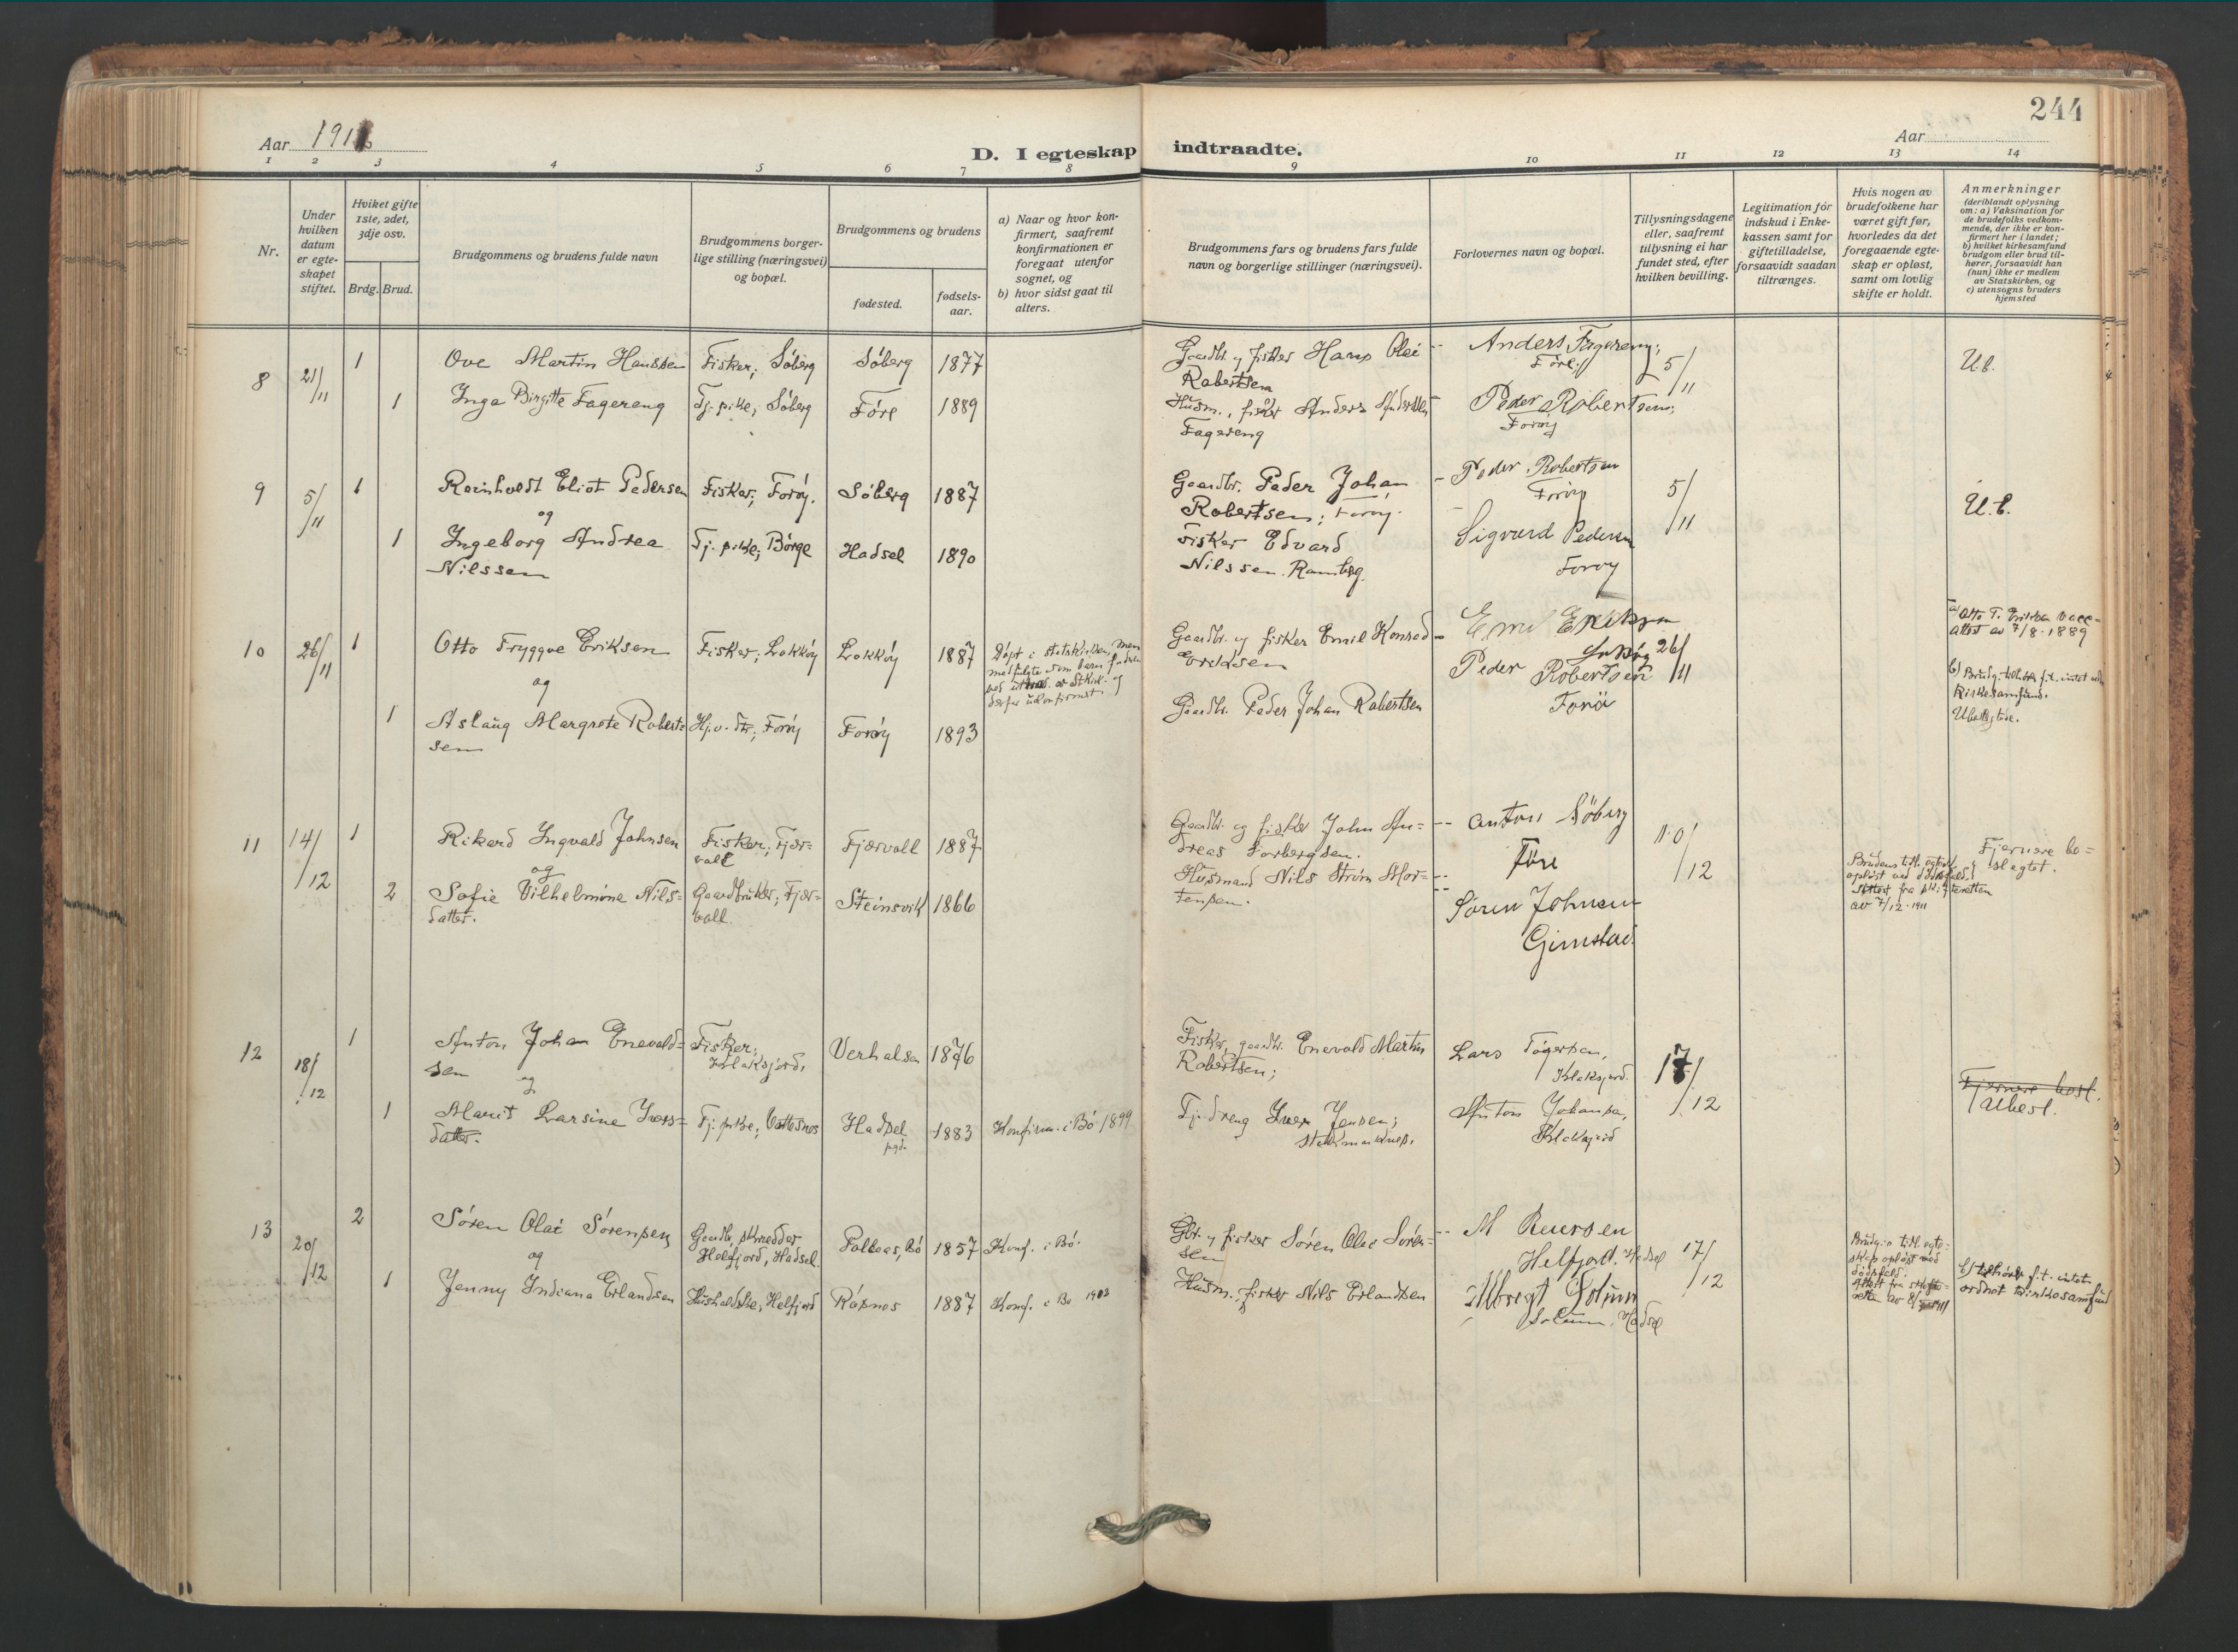 244
Aar 191
D. I egteskap indtraadte.
Aar
1 2 3 4 5 6 7 8 9 10 11 12 13 14
Nr.
Under
hvilken
datum
er egte-
skapet
stiftet.
Hviket gifte
1ste, 2det,
3dje osv.
Brdg. Brud.
Brudgommens og brudens fulde navn
Brudgommens borger-
lige stilling (næringsvei)
og bopæl.
Brudgommens og brudens
fødested.
fødsels-
aar.
a) Naar og hvor kon-
firmert, saafremt
konfirmationen er
foregaat utenfor
sognet, og
b) hvor sidst gaat til
alters.
Brudgommens fars og brudens fars fulde
navn og borgerlige stillinger (næringsvei).
Forlovernes navn og bopæl.
Tillysningsdagene
eller, saafremt
tillysning ei har
fundet sted, efter
hvilken bevilling.
Legitimation for
indskud i Enke-
kassen samt for
giftetilladelse,
forsaavidt saadan
tiltrænges.
Hvis nogen av
brudefolkene har
været gift før,
hvorledes da det
foregaaende egte-
skap er opløst,
samt om lovlig
skifte er holdt.
Anmerkninger
(deriblandt oplysning
om: a) Vaksination for
de brudefolks vedkom-
mende, der ikke er kon-
firmert her i landet;
b) hvilket kirkesamfund
brudgom eller brud til-
hører, forsaavidt han
(hun) ikke er medlem
av Statskirken, og
c) utensogns bruders
hjemsted
8 21/11 1 Ove Martin Hanssen Fisker; Søberg Søberg 1877
Gaardbr. og fisker Hans Olai
Robertsen
Anders Fagereng;
Føre;
5/11
U.b.
1 Inga Birgitte Fagereng Tj. pike; Søberg Føre 1889
Husm., fisker Anders Andersen
Fagereng
Peder Robertsen;
Forøy
9 5/11 1 Reinholdt Eliot Pedersen Fisker; Forøy. Søberg 1887
og
Gaardbr. Peder Johan
Robertsen; Forøy.
Peder Robertsen
Forøy
5/11
U.b.
1 Ingeborg Andrea
Nilssen
Tj. pike; Børge Hadsel 1890
Fisker Edvard
Nilssen. Ramberg.
Sigvard Pedersen
Forøy
10 26/11 1 Otto Tryggve Eriksen Fisker; Lokkøy Lokkøy 1887
og
Døpt i statskirken, men
medfulgte som barn
derfor ukonfirmert.
Gaardbr. og fisker Emil Konrad
Eriksen
Emil Eriksen
26/11
a) Otto T. Eriksen vacc-
attest av 7/8-1889
b) Brudg. tilhører f.t. intet
Kirkesamfund.
Ubeslegtede.
1 Aslaug Margrete Robert-
sen
Hj.v. dtr; Forøy Forøy 1893
Gaardbr. Peder Johan Robertsen
Peder Robertsen
Forøi
11 14/12 1 Rikard Ingvald Johnsen
og
Fisker; Fjær-
voll
Fjærvoll 1887
Gaardbr. og fisker John An-
dreas Torbergsen.
Anton Søberg
Føre
10/12
Fjernere be-
slegtet.
2 Sofie Vilhelmine Nils-
datter.
Gaardbruker; Fjær-
voll.
Steinsvik 1866
Husmand Nils Strøm Mor-
tensen.
Søren Johnsen
Gimstad
Brudens tidl. egtesk.
opløst ved dødsfald.
Attest fra skifteretten
av 7/12-1911
12 18/12 1 Anton Johan Enevald-
sen
og
Fisker;
Klaksjord.
Verhalsen 1876
Fisker, gaardbr. Enevald Martin
Robertsen;
Lars Tøgersen,
Klaksjord.
17/12
Fjernere besl.
Ubesl.
1 Marit Larsine Ivers-
datter.
Tj. pike; Vottesnes Hadsel
pgd.
1883 Konfirm. i Bø 1899
Tj. dreng Iver Jensen;
Stokmarknes.
Anton Johansen,
Klaksjord
13 20/12 2 Søren Olai Sørensen
og
Gaardbr., smed
Helfjord, Hadsel.
Bø 1857 Konf. i Bø.
Gbr. og fisker Søren Olai Sørен-
sen
M Reiersen
Helfjord. Hadsel
17/12
Brudg.s tidl. egte-
skap opløst ved
dødsfald.
Attest fra skifte-
retten av
b) tilhører f.t. intet
ordnet kirkesamfund
1 Jenny Indiana Erlandsen Husholderske; Helfjord Røsnes 1887 Konf. i Bø
Husm., fisker Nils Erlandsen
Albregt Solum
Solum. Hadsel